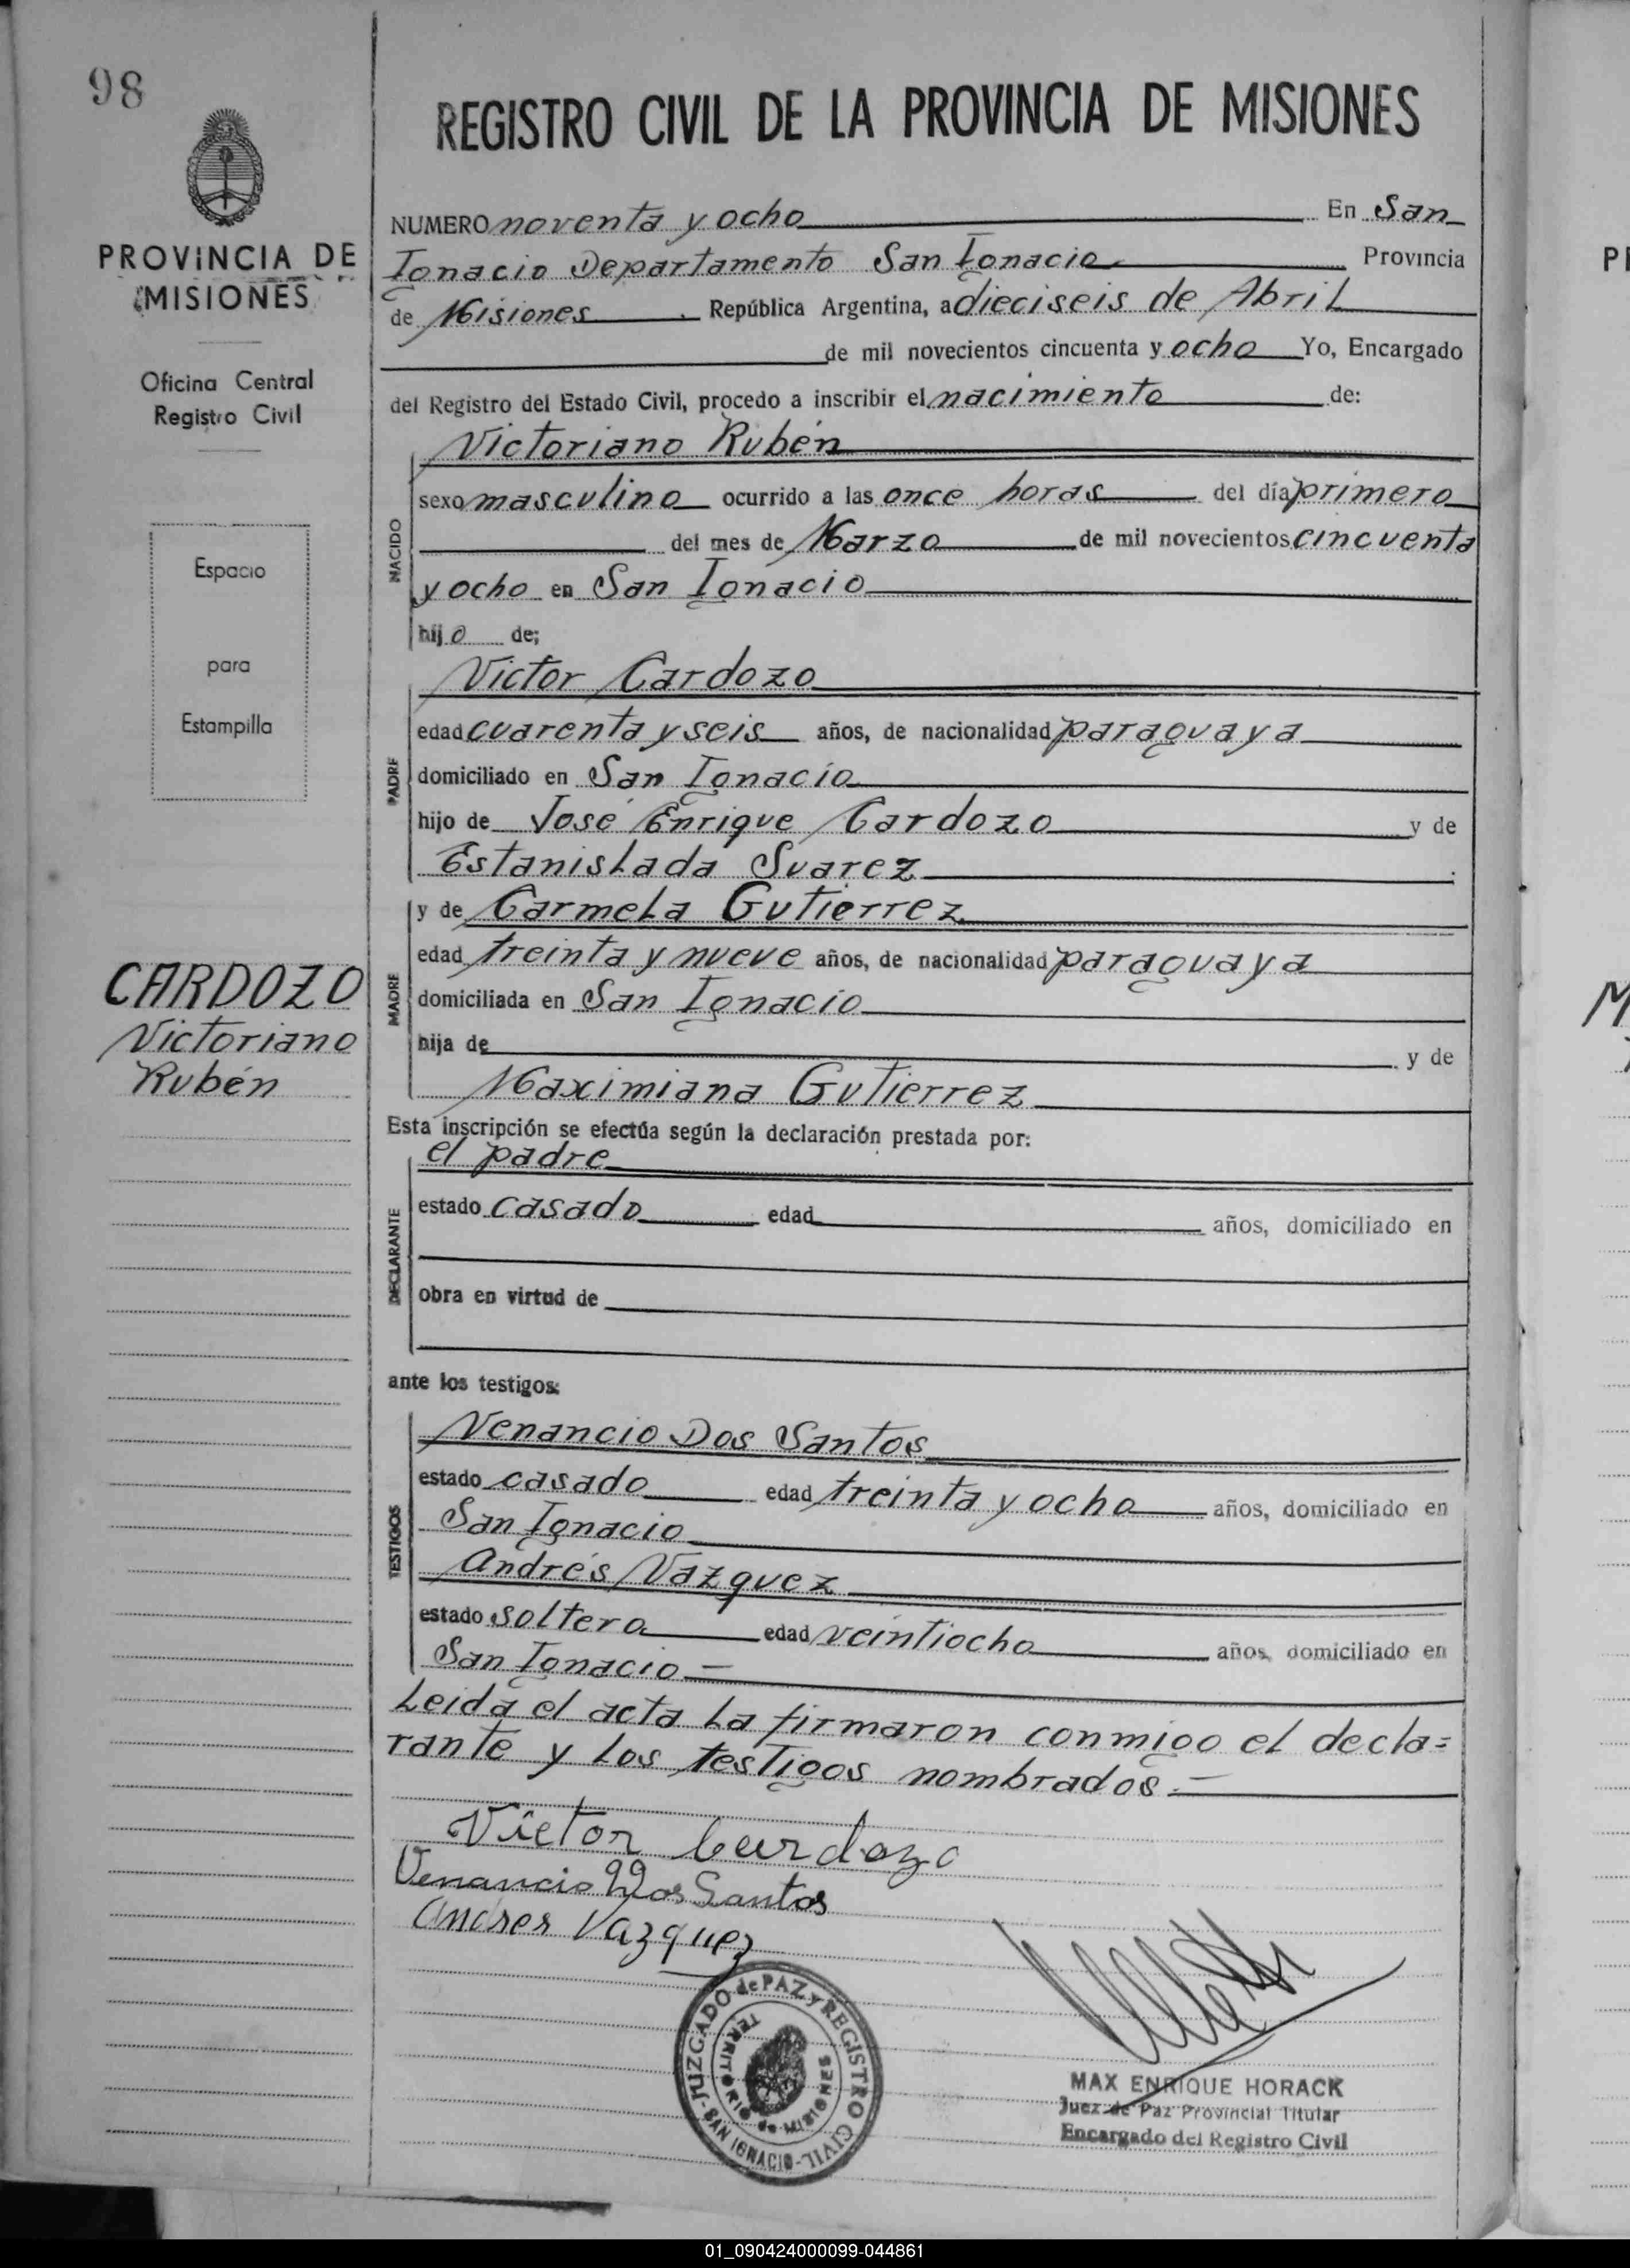 98
PROVINCIA DE
MISIONES
Oficina Central
Registro Civil
Espacio
para
Estampilla
CARDOZO
Victoriano
Rubén
REGISTRO CIVIL DE LA PROVINCIA DE MISIONES
NUMERO noventa y ocho En San
Ignacio Departamento San Ignacio Provincia
de Misiones República Argentina, a dieciseis de Abril
de mil novecientos cincuenta y ocho Yo, Encargado
del Registro del Estado Civil, procedo a inscribir el nacimiento de:
NACIDO
Victoriano Rubén
sexo masculino ocurrido a las once horas del día primero
del mes de Marzo de mil novecientos cincuenta
y ocho en San Ignacio
hijo de;
PADRE
Victor Cardozo
edad cuarenta y seis años, de nacionalidad paraguaya
domiciliado en San Ignacio
hijo de José Enrique Cardozo y de
Estanislada Suarez
MADRE
y de Carmela Gutierrez
edad treinta y nueve años, de nacionalidad paraguaya
domiciliada en San Ignacio
hija de y de
Maximiana Gutierrez
Esta inscripción se efectúa según la declaración prestada por:
DECLARANTE
el padre
estado casado edad años, domiciliado en
obra en virtud de
ante los testigos:
TESTIGOS
Venancio Dos Santos
estado casado edad treinta y ocho años, domiciliado en
San Ignacio
Andrés Vazquez
estado soltero edad veintiocho años, domiciliado en
San Ignacio.—
Leida el acta la firmaron conmigo el decla=
rante y los testigos nombrados.—
Victor Cardozo
Venancio Dos Santos
Andres Vazquez
JUZGADO de PAZ y REGISTRO CIVIL - SAN IGNACIO -
TERRITORIO de MISIONES
MAX ENRIQUE HORACK
Juez de Paz Provincial Titular
Encargado del Registro Civil
01_090424000099-044861